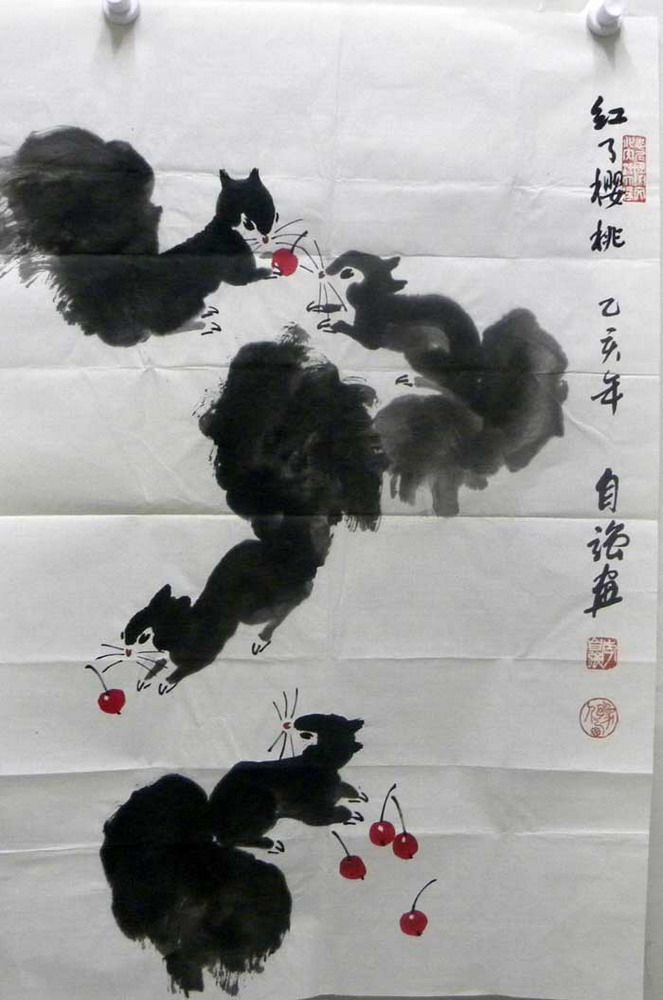 红了樱桃
乙亥年
自强画